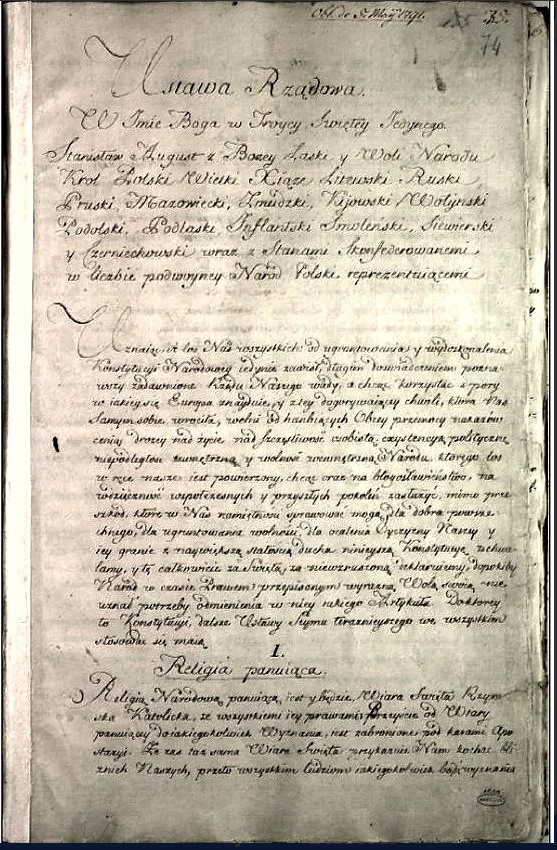 Obl. de 5. Maij 1791.
74
Ustawa Rządowa.
W Imie Boga w Troycy Swiętey Jedynego.
Stanisław August z Bozey Łaski y Woli Narodu
Krol Polski Wielki Xiąże Litewski Ruski
Pruski, Mazowiecki, Zmudzki, Kijowski Wołyński
Podolski, Podlaski Inflantski Smoleński, Siewierski
y Czerniechowski wraz z Stanami Skonfederowanemi
w liczbie podwoyney Naród Polski reprezentuiącemi
Uznaiąc, iż los Nas wszystkich od ugruntowania y wydoskonalenia
Konstytucyi Narodowey iedynie zawisł, długim doswiadczeniem pozna-
wszy zadawnione Rządu Naszego wady, a chcąc korzystać z pory
w iakiey się Europa znayduie, y z tey dogorywaiącey chwili, ktora Nas
samym sobie wrociła, wolni od hanbiących Obcey przemocy nakazów
ceniąc drozey nad zycie nad szczęsliwość osobistą exystencyą polityczną
niepodległość zewnętrzną y wolność wewnętrzną Narodu, ktorego los
w ręce nasze iest powierzony, chcąc oraz na błogosławieństwo, na
wdzięczność wspołczesnych y przyszłych pokoleń zasłużyć, mimo prze-
szkód, które w Nas namiętności sprawować mogą, dla dobra powsze-
chnego, dla ugruntowania wolności, dla ocalenia Oyczyzny Naszey y
iey granic z naywiększą stałoscią ducha ninieyszą Konstytucyę uchwa-
lamy, y tę całkowicie za Swiętą, za niewzruszoną deklaruiemy, dopokiby
Narod w czasie Prawem przepisanym wyrazną Wolą swoią nie
uznał potrzeby odmienienia w niey iakiego Artykułu. Do ktorey
to Konstytucyi, dalsze Ustawy Seymu teraznieyszego we wszystkim
stosować się maią.
I.
Religia panuiąca.
Religią Narodową panuiącą, iest y będzie, Wiara Swięta Rzym-
ska Katolicka, ze wszystkiemi iey prawami. Przeyscie od Wiary
panuiącey do iakiegokolwiek Wyznania, iest zabronione pod karami Apo-
stazyi. Ze zas taz sama Wiara Swięta przykazuie Nam kochać bli-
znich Naszych, przeto wszystkim ludziom iakiegokolwiek bądź wyznania